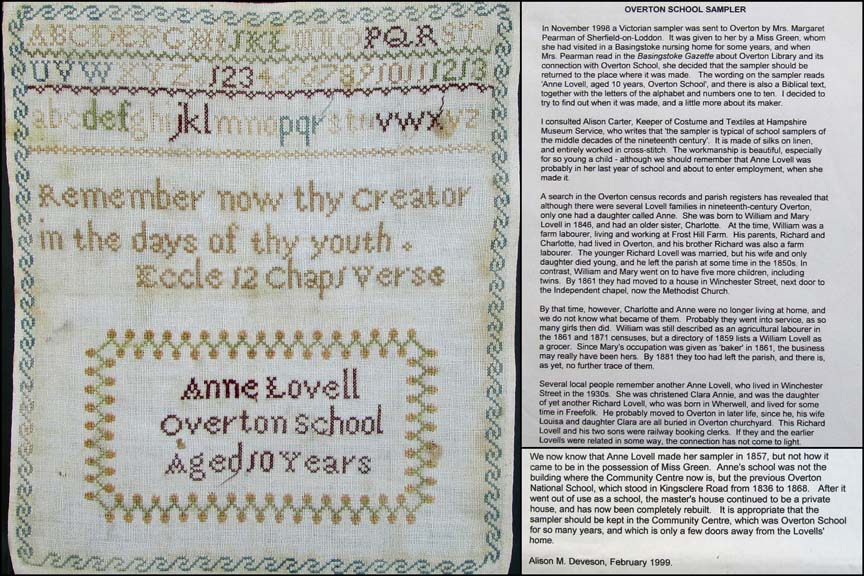 ABCDEFGHIJKLMNOPQRST
UVWXYZ 12345678910111213
abcdefghijklmnopqrstuvwxyz
Remember now thy Creator
in the days of thy youth .
Eccle 12 Chap 1 Verse
Anne Lovell
Overton School
Aged 10 Years
OVERTON SCHOOL SAMPLER
In November 1998 a Victorian sampler was sent to Overton by Mrs. Margaret
Pearman of Sherfield-on-Loddon. It was given to her by a Miss Green, whom
she had visited in a Basingstoke nursing home for some years, and when
Mrs. Pearman read in the Basingstoke Gazette about Overton Library and its
connection with Overton School, she decided that the sampler should be
returned to the place where it was made. The wording on the sampler reads
'Anne Lovell, aged 10 years, Overton School', and there is also a Biblical text,
together with the letters of the alphabet and numbers one to ten. I decided to
try to find out when it was made, and a little more about its maker.
I consulted Alison Carter, Keeper of Costume and Textiles at Hampshire
Museum Service, who writes that 'the sampler is typical of school samplers of
the middle decades of the nineteenth century'. It is made of silks on linen,
and entirely worked in cross-stitch. The workmanship is beautiful, especially
for so young a child - although we should remember that Anne Lovell was
probably in her last year of school and about to enter employment, when she
made it.
A search in the Overton census records and parish registers has revealed that
although there were several Lovell families in nineteenth-century Overton,
only one had a daughter called Anne. She was born to William and Mary
Lovell in 1846, and had an older sister, Charlotte. At the time, William was a
farm labourer, living and working at Frost Hill Farm. His parents, Richard and
Charlotte, had lived in Overton, and his brother Richard was also a farm
labourer. The younger Richard Lovell was married, but his wife and only
daughter died young, and he left the parish at some time in the 1850s. In
contrast, William and Mary went on to have five more children, including
twins. By 1861 they had moved to a house in Winchester Street, next door to
the Independent chapel, now the Methodist Church.
By that time, however, Charlotte and Anne were no longer living at home, and
we do not know what became of them. Probably they went into service, as so
many girls then did. William was still described as an agricultural labourer in
the 1861 and 1871 censuses, but a directory of 1859 lists a William Lovell as
a grocer. Since Mary's occupation was given as 'baker' in 1861, the business
may really have been hers. By 1881 they too had left the parish, and there is,
as yet, no further trace of them.
Several local people remember another Anne Lovell, who lived in Winchester
Street in the 1930s. She was christened Clara Annie, and was the daughter
of yet another Richard Lovell, who was born in Wherwell, and lived for some
time in Freefolk. He probably moved to Overton in later life, since he, his wife
Louisa and daughter Clara are all buried in Overton churchyard. This Richard
Lovell and his two sons were railway booking clerks. If they and the earlier
Lovells were related in some way, the connection has not come to light.
We now know that Anne Lovell made her sampler in 1857, but not how it
came to be in the possession of Miss Green. Anne's school was not the
building where the Community Centre now is, but the previous Overton
National School, which stood in Kingsclere Road from 1836 to 1868. After it
went out of use as a school, the master's house continued to be a private
house, and has now been completely rebuilt. It is appropriate that the
sampler should be kept in the Community Centre, which was Overton School
for so many years, and which is only a few doors away from the Lovells'
home.
Alison M. Deveson, February 1999.